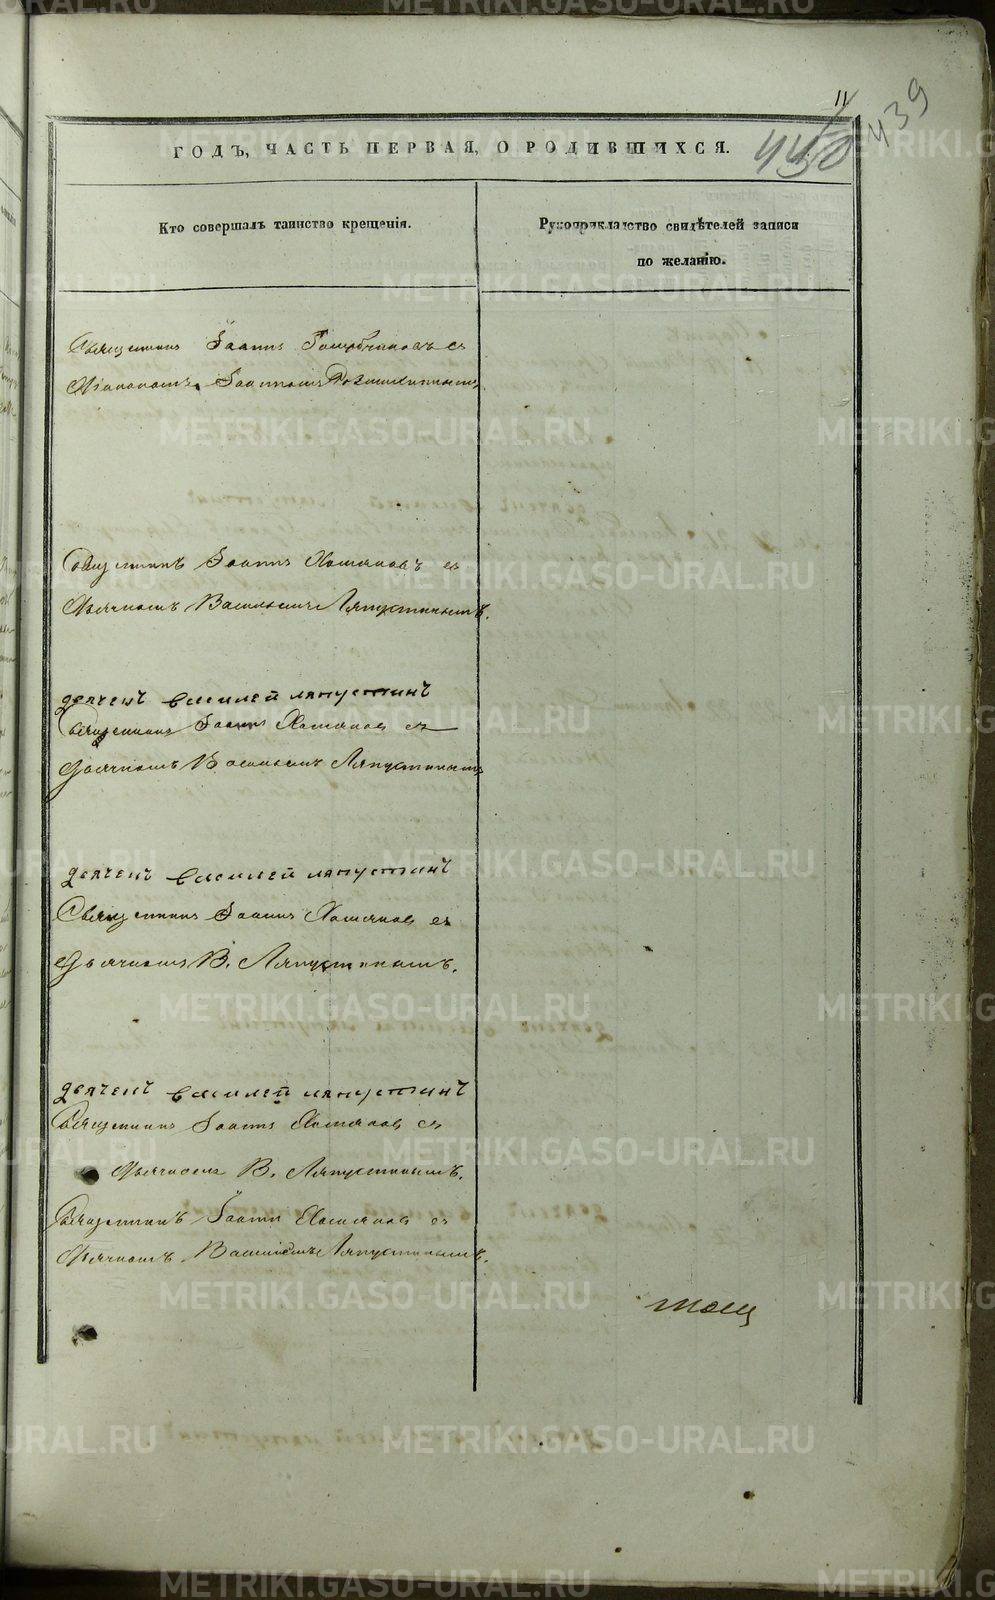 11
439
440
ГОДЪ, ЧАСТЬ ПЕРВАЯ, О РОДИВШИХСЯ.
Кто совершалъ таинство крещенія.
Рукоприкладство свидѣтелей записи
по желанію.
Священникъ Іоаннъ съ
Діакономъ Іоанномъ
Священникъ Іоаннъ Хомяковъ съ
Дьячкомъ Василіемъ Ляпустинымъ.
дьячекъ василей ляпустинъ
Священникъ Іоаннъ Хомяковъ съ
Дьячкомъ Василіемъ Ляпустинымъ
дьячекъ василей ляпустинъ
Священникъ Іоаннъ Хомяковъ съ
Дьячкомъ В. Ляпустинымъ.
дьячекъ василей ляпустинъ
Священникъ Іоаннъ Хомяковъ съ
Дьячкомъ В. Ляпустинымъ.
Священникъ Іоаннъ Хомяковъ съ
Дьячкомъ Василіемъ Ляпустинымъ.
METRIKI.GASO-URAL.RU